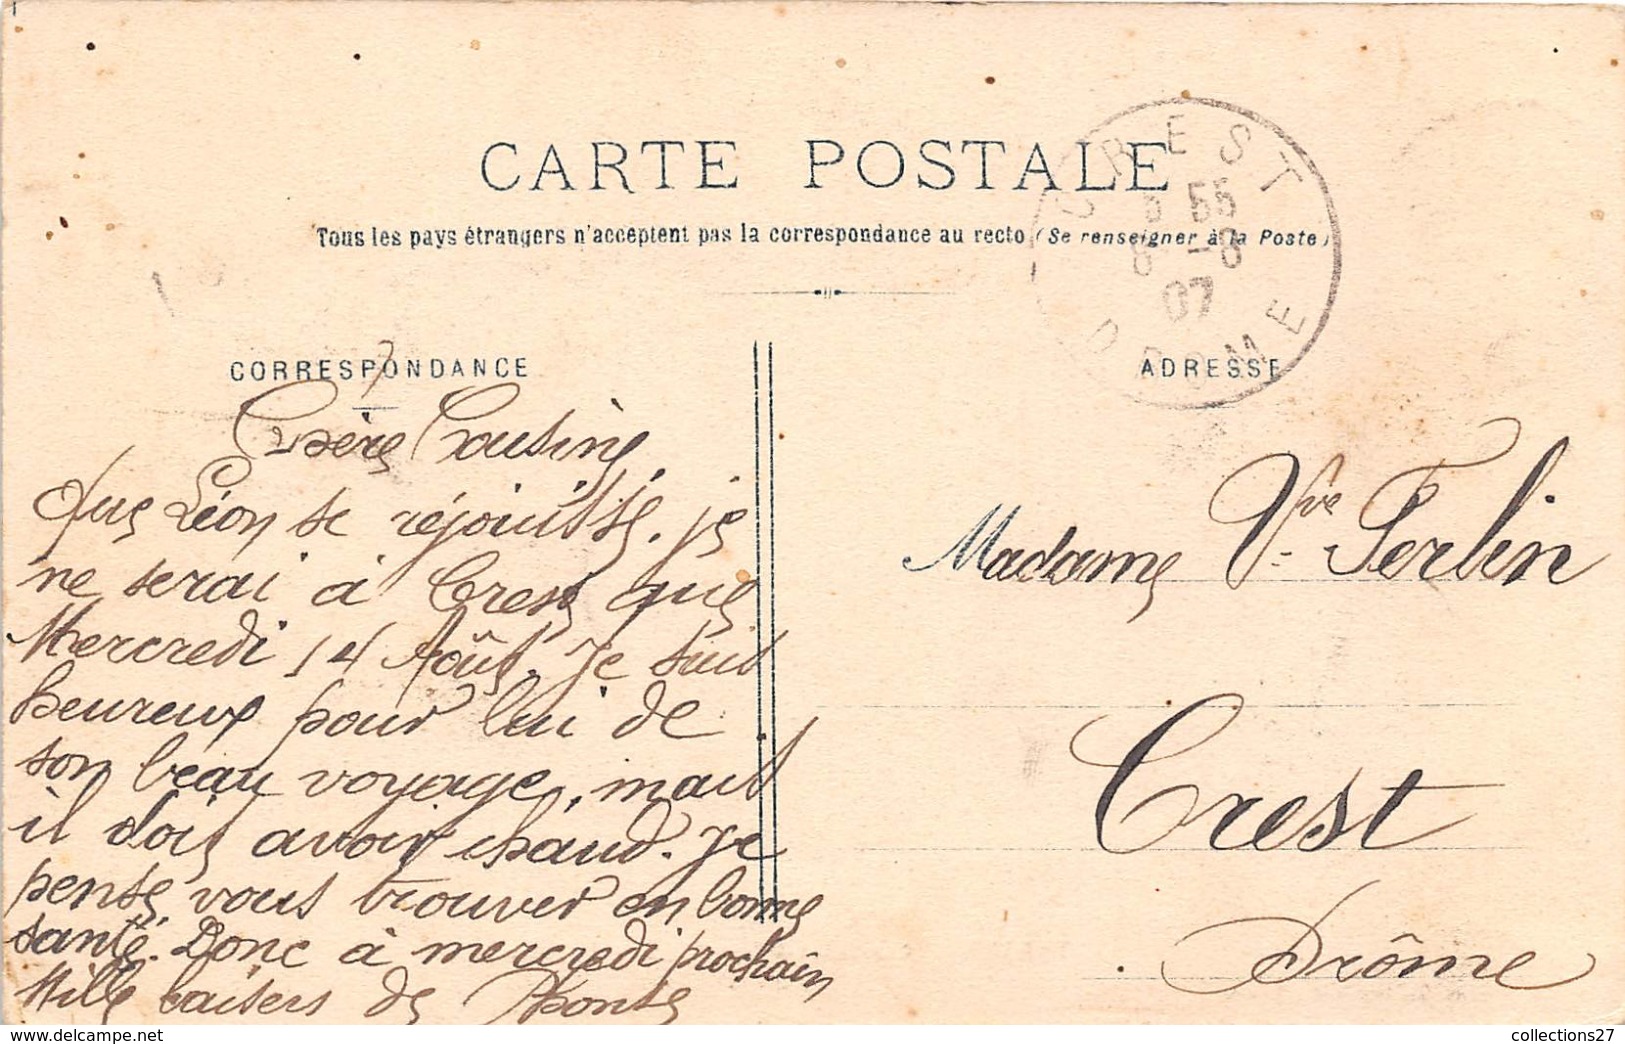 CARTE POSTALE
Tous les pays étrangers n'acceptent pas la correspondance au recto (Se renseigner à la Poste)
CREST
55
8 - 8
07
DROME
CORRESPONDANCE
ADRESSE
Chère Cousine,
que Léon se réjouisse. je
ne serai à Crest que
Mercredi 14 Août. Je suis
heureux pour lui de
son beau voyage, mais
il doit avoir chaud. Je
pense vous trouver en bonne
santé. Donc à mercredi prochain
Mille baisers de
Madame Vve Ferlin
Crest
Drôme
collections27